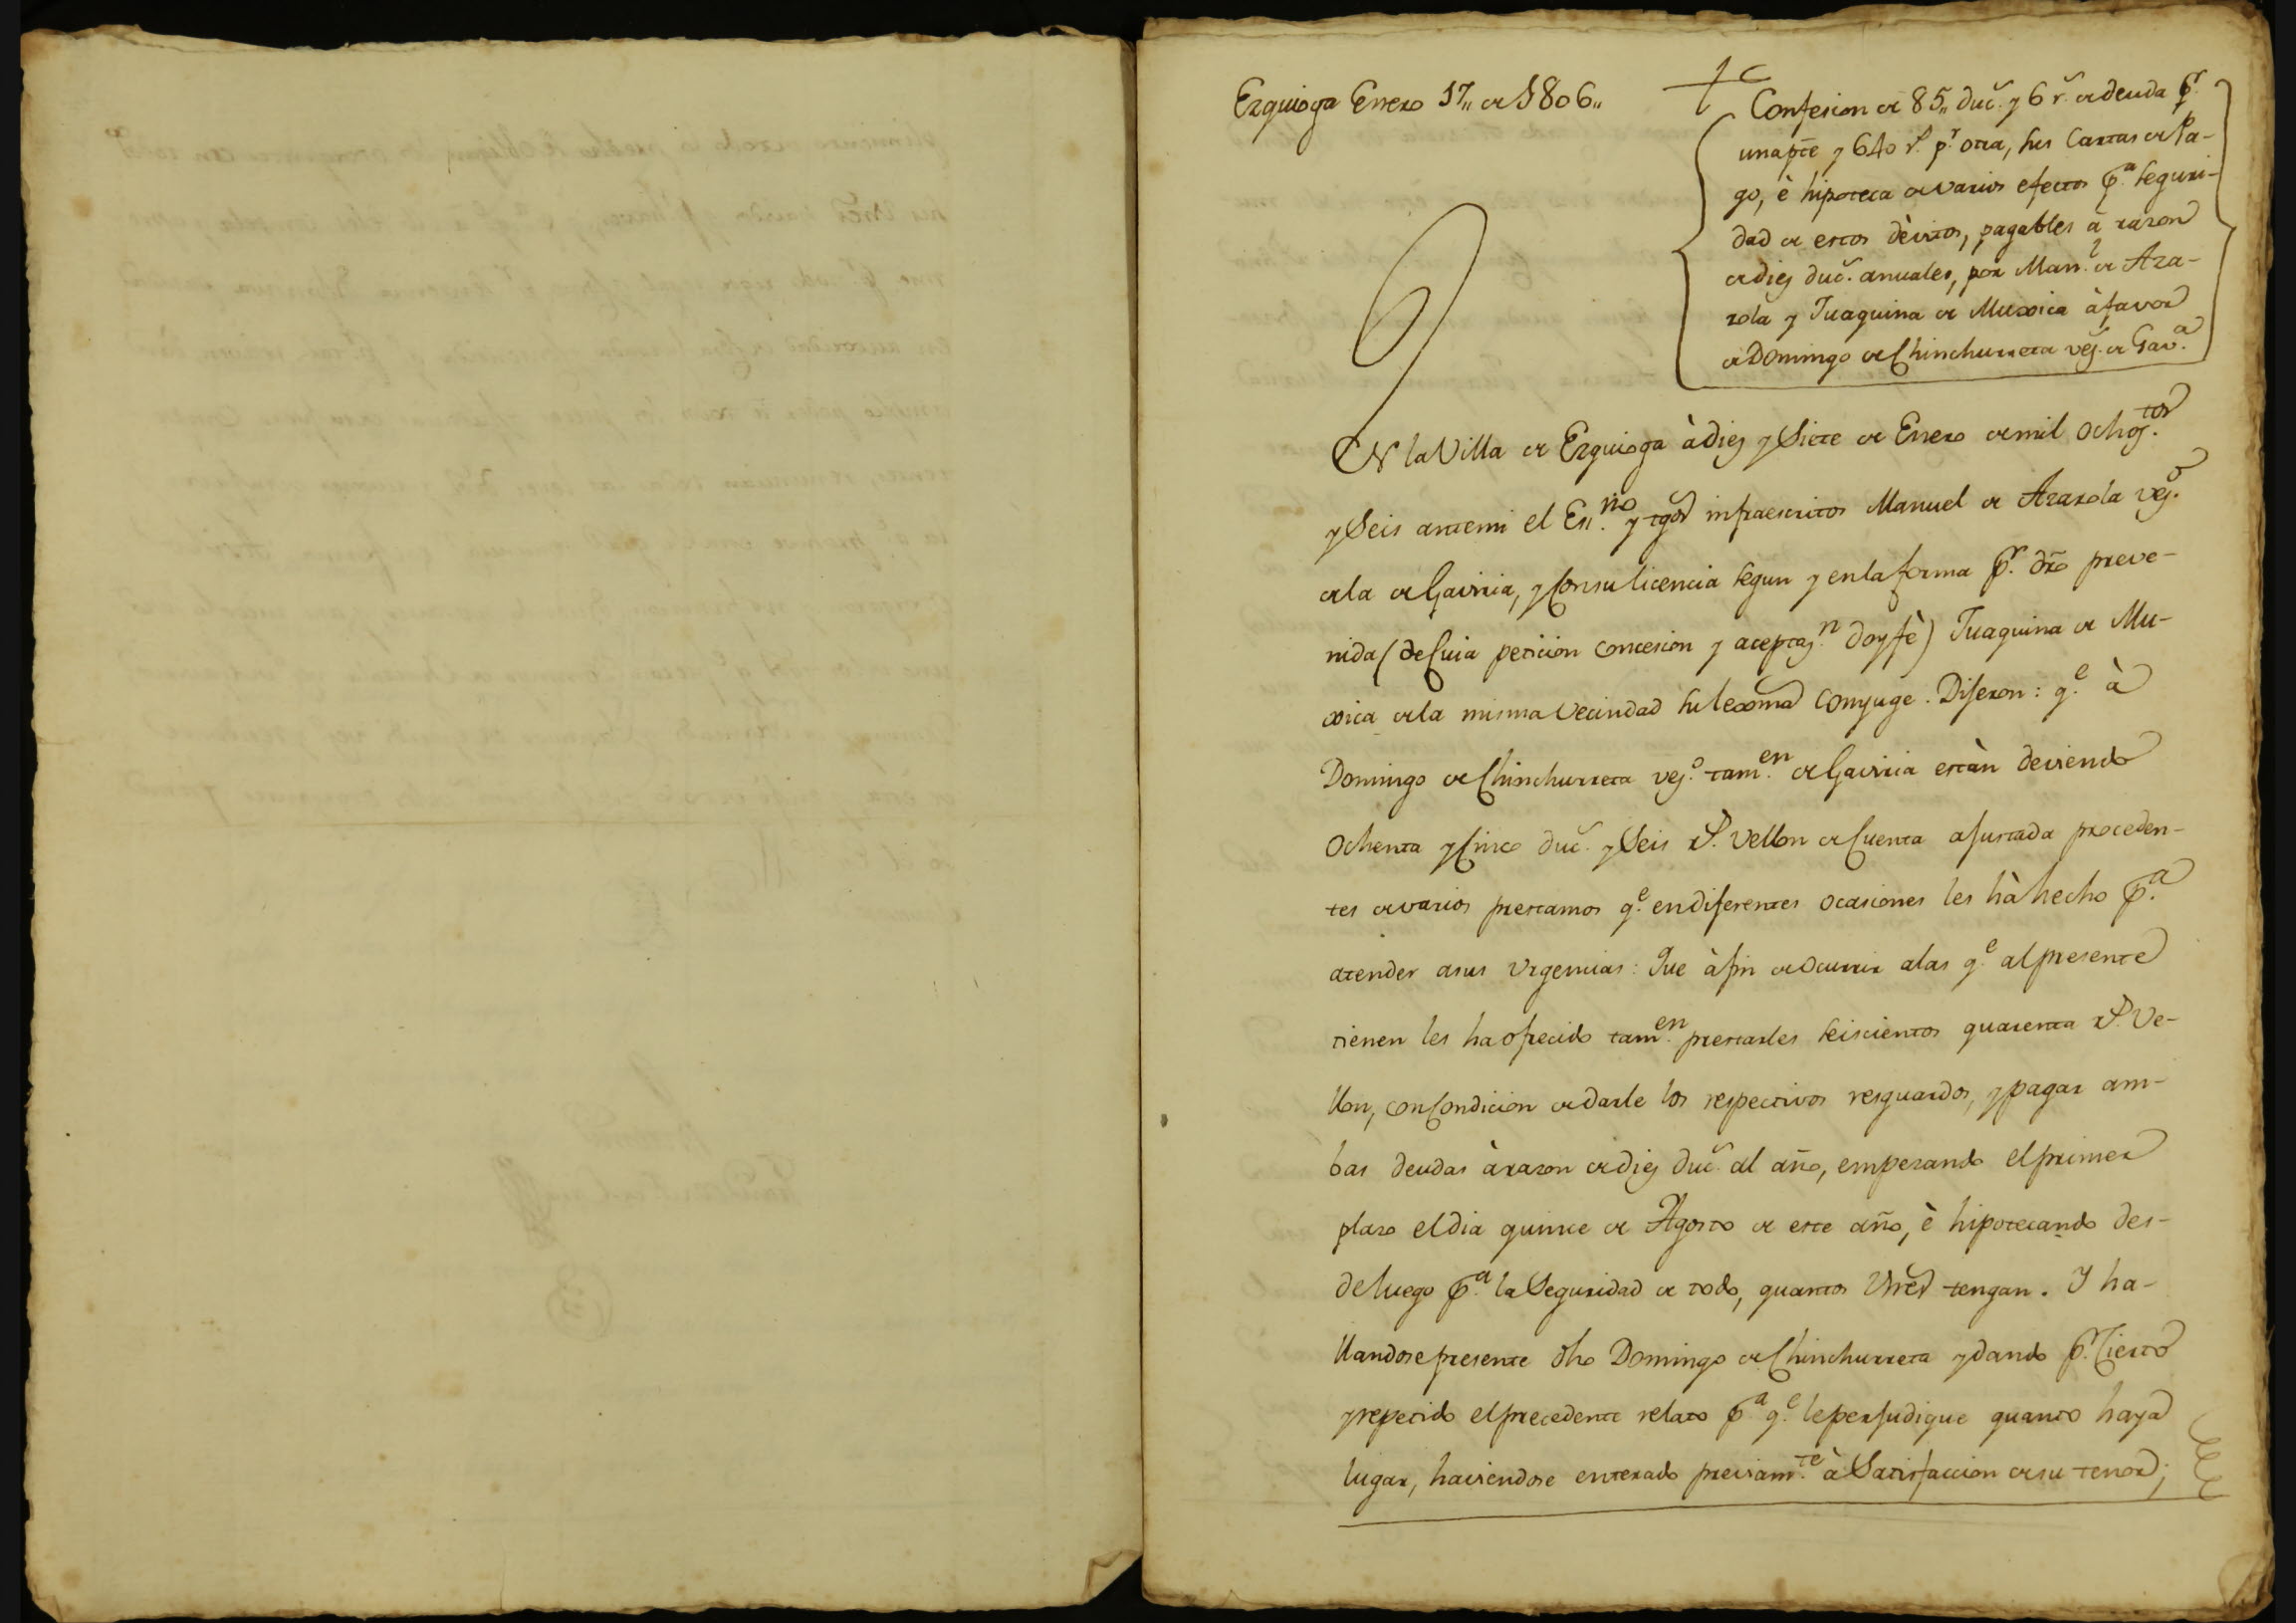 Ezquioga Enero 17,, de 1806,,
Confesion de 85,, duc.s y 6 r.s de deuda p.r
una pte y 640 r.s p.r otra, sus Cartas de Pa-
go, è hipoteca de varios efectos p.a seguri-
dad de estos dèvitos, pagables à razon
de diez duc.s anuales, por Man.l de Aza-
rola y Juaquina de Muxica à favor
de Domingo de Chinchurreta vez.o de Gav.a
EN la Villa de Ezquioga à diez y Siete de Enero de mil ochoz.tos
y Seis ante mi el Es.no y tgos infraescritos Manuel de Azarola vez.o
de la de Gaviria, y Con su licencia segun y en la forma p.r dro preve-
nida (de Cuia peticion concesion y aceptaz.n doy fè) Juaquina de Mu-
xica de la misma vecindad su lexma Conyuge. Dijeron: q.e à
Domingo de Chinchurreta vez.o tam.en de Gaviria estàn deviendo
ochenta y Cinco duc.s y Seis r.s vellon de Cuenta ajustada proceden-
tes de varios prestamos q.e en diferentes ocasiones les hà hecho p.a
atender a sus Urgencias: Que à fin de ocurrir a las q.e al presente
tienen les ha ofrecido tam.en prestarles seiscientos quarenta r.s Ve-
llon, con Condicion de darle los respectivos resguardos, y pagar am-
bas deudas à razon de diez duc.s al año, empezando el primer
plazo el dia quince de Agosto de este año, è hipotecando des-
de luego p.a la Seguridad de todo, quantos Vnes tengan. Y ha-
llandose presente dho Domingo de Chinchurreta y dando p.r Cierto
y repetido el precedente relato p.a q.e le perjudique quanto haya
lugar, haviendose enterado previam.te à Satisfaccion de su tenor;